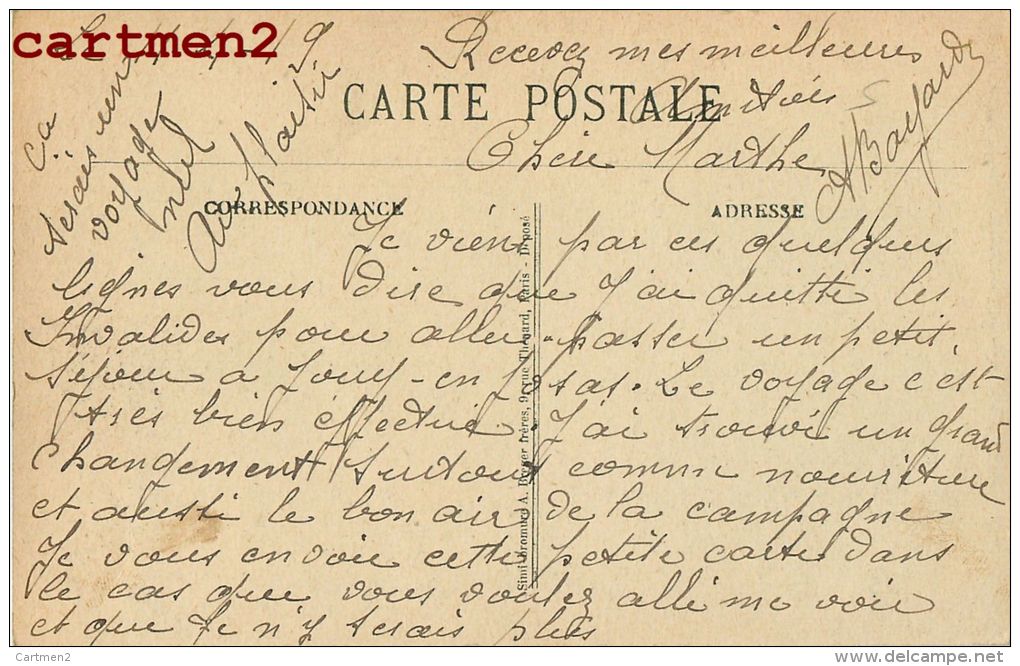 cartmen2
Le 11-4-19
Recevez mes meilleures
CARTE POSTALE
Amitiés
ABayard
Chère Marthe
CORRESPONDANCE
ADRESSE
Je viens par ces quelques
lignes vous dire que J'ai quitté les
Invalides pour aller passer un petit
séjour à Jouy-en Josas. Le voyage c'est
très bien effectué. J'ai trouvé un grand
changement surtout comme nourriture
et aussi le bon air de la campagne
Je vous envoie cette petite carte dans
le cas que vous voulez allé me voir
et que Je n'y serais plus
Ca
serais un
voyage
nul
Au plaisir
Simili-Bromure A. Breger frères, 9, rue Thénard, Paris - Déposé
Cartmen2
delcampe.net